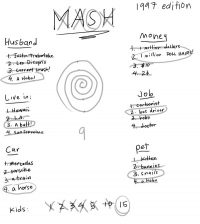 MASH
1997 edition
Husband
1. Justin Timberlake
2. Leo DiCaprio
3. Current crush!
4. A hobo!
Money
1. 1 million dollars
3. $10
4. 2¢
Live in:
1. Hawaii
2. L.A.
4. San Francisco
Job
1. Cartoonist
2. bus driver
3. hobo
4. doctor
9
Car
1. Mercedes
2. porsche
3. a train
4. a horse
Pet
1. kitten
2. bunnies
3. snails
Kids:
1 2 3 4 5 10 15